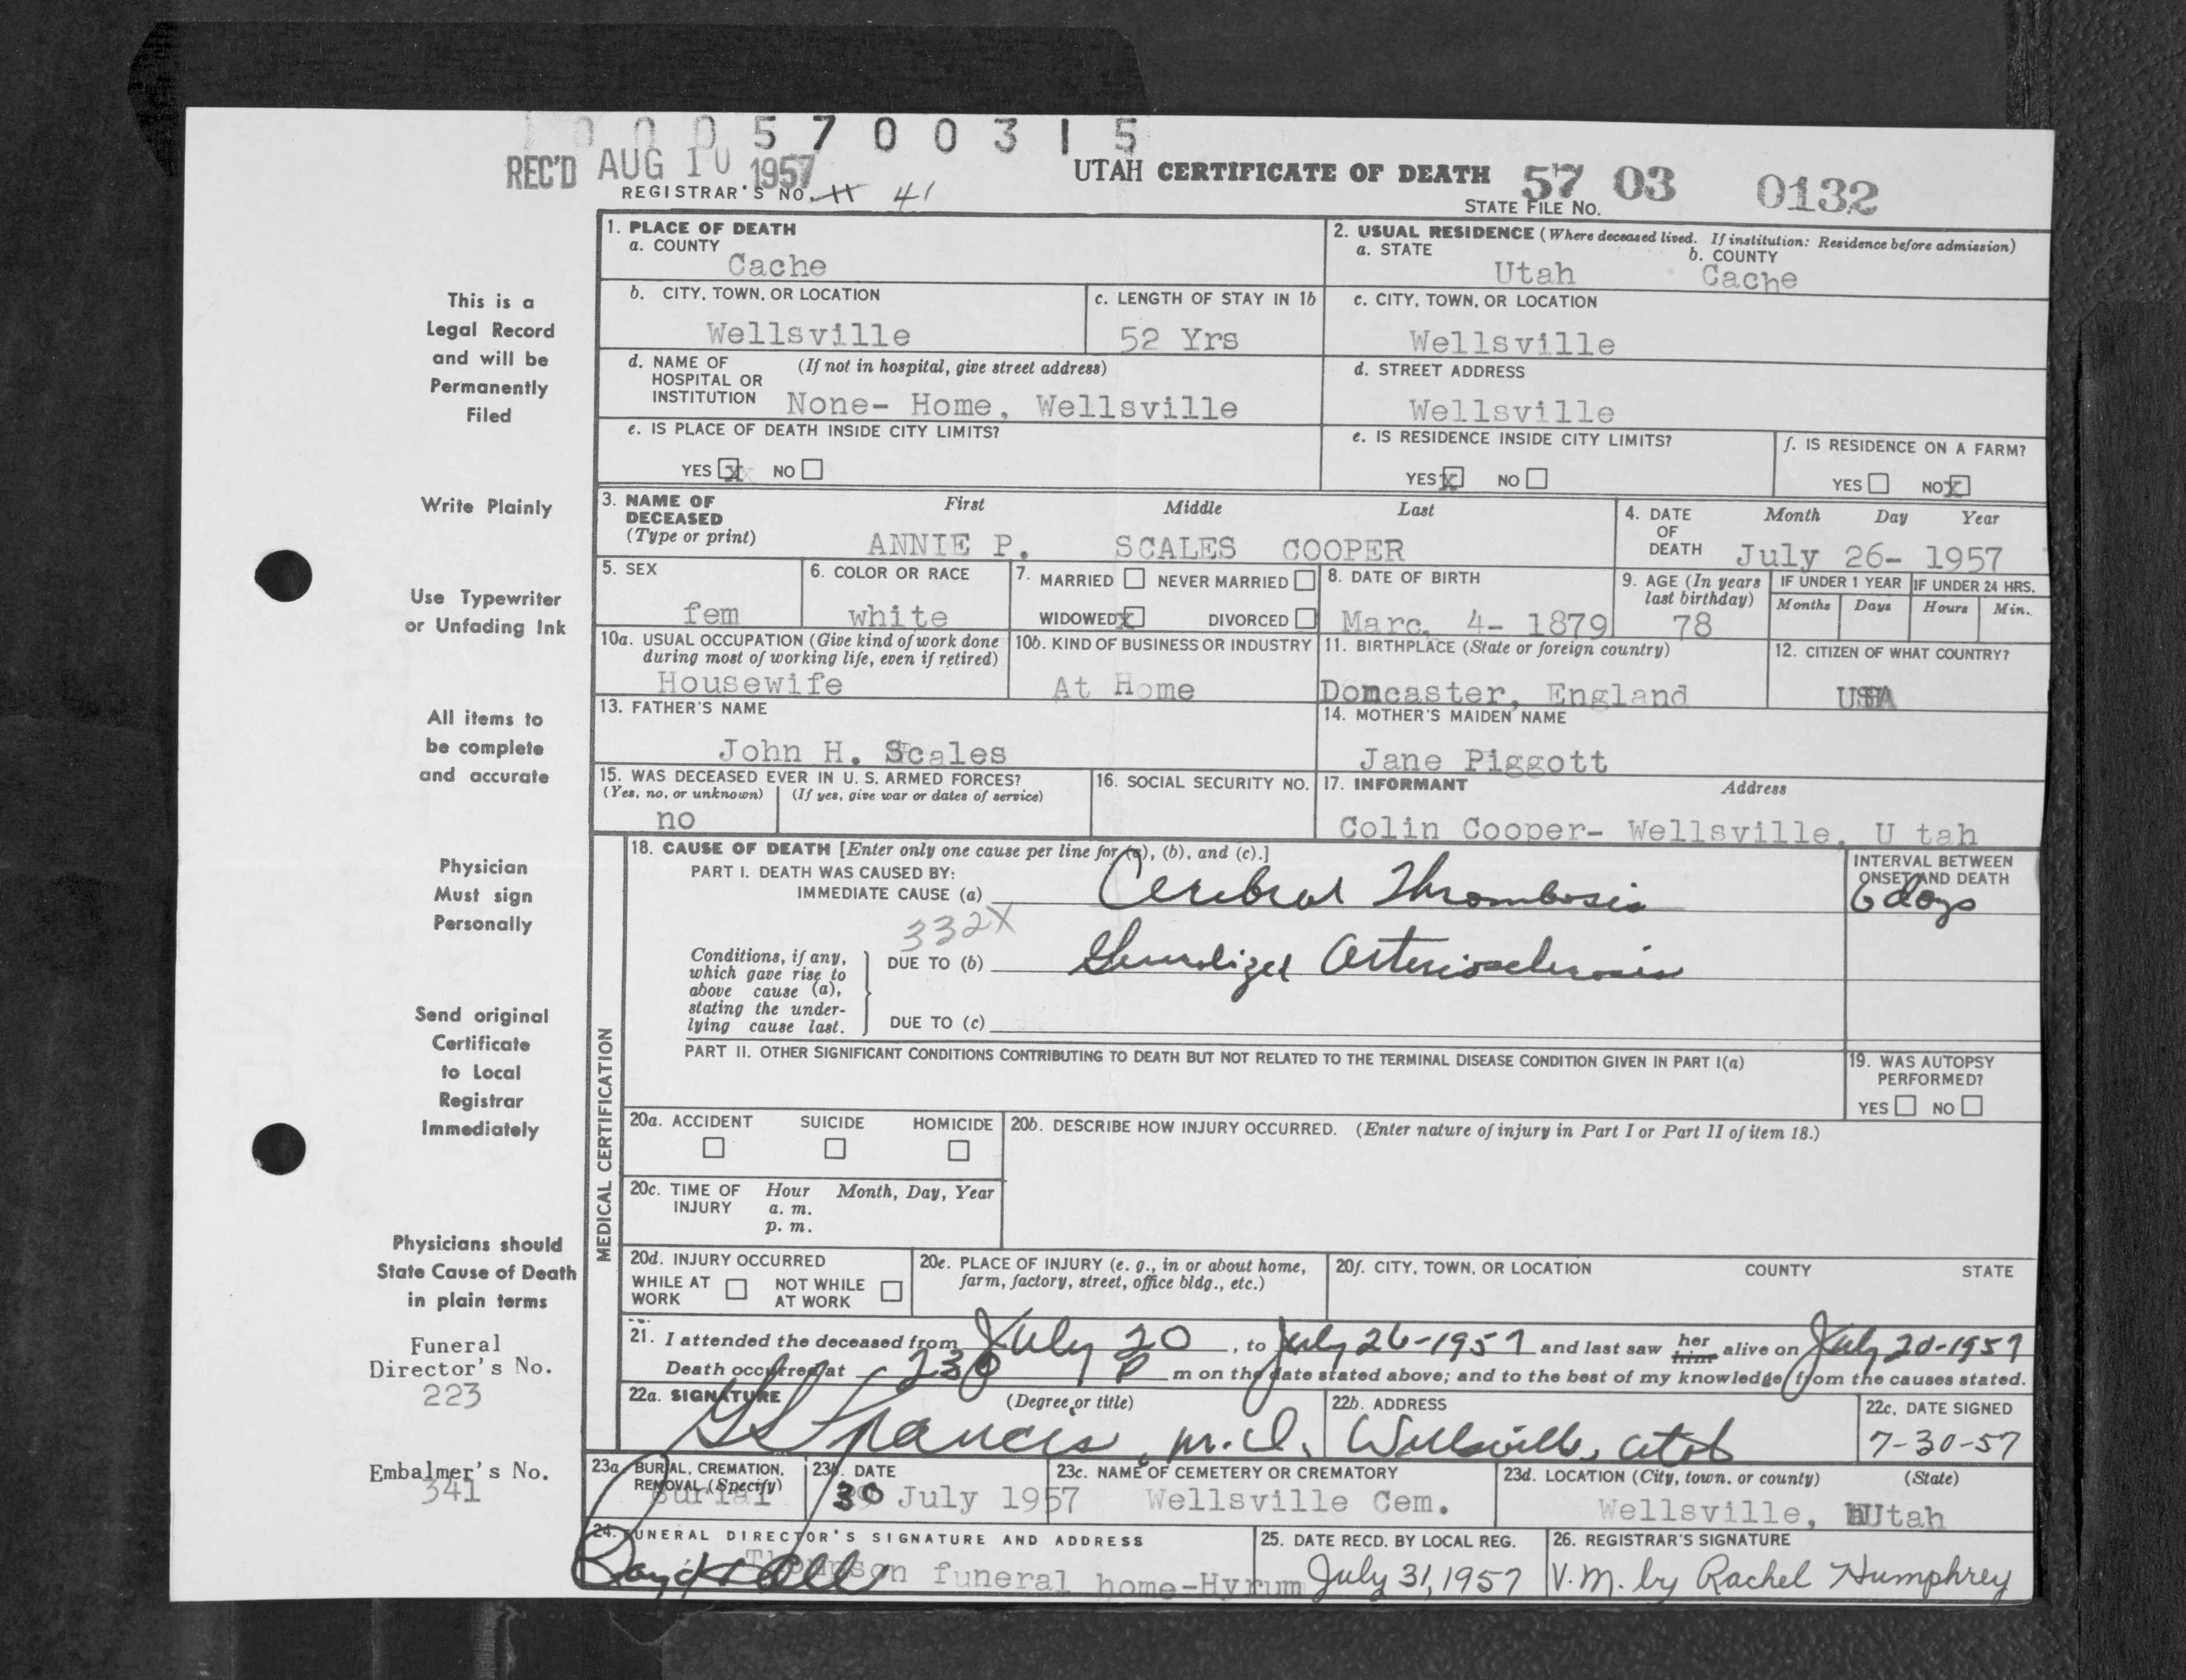 1 0 0 0 5 7 0 0 3 1 5
REC'D AUG 10 1957
REGISTRAR'S NO. 41
UTAH CERTIFICATE OF DEATH 57 03 0132
STATE FILE No.
This is a
Legal Record
and will be
Permanently
Filed
Write Plainly
Use Typewriter
or Unfading Ink
All items to
be complete
and accurate
Physician
Must sign
Personally
Send original
Certificate
to Local
Registrar
Immediately
Physicians should
State Cause of Death
in plain terms
Funeral
Director's No.
223
Embalmer's No.
341
1. PLACE OF DEATH
a. COUNTY
Cache
2. USUAL RESIDENCE (Where deceased lived. If institution: Residence before admission)
a. STATE b. COUNTY
Utah Cache
b. CITY, TOWN, OR LOCATION
Wellsville
c. LENGTH OF STAY IN 1b
52 Yrs
c. CITY, TOWN, OR LOCATION
Wellsville
d. NAME OF (If not in hospital, give street address)
HOSPITAL OR
INSTITUTION None- Home, Wellsville
d. STREET ADDRESS
Wellsville
e. IS PLACE OF DEATH INSIDE CITY LIMITS?
YES x NO
e. IS RESIDENCE INSIDE CITY LIMITS?
YES x NO
f. IS RESIDENCE ON A FARM?
YES NO x
3. NAME OF DECEASED First Middle Last
(Type or print) ANNIE P. SCALES COOPER
4. DATE OF DEATH Month Day Year
July 26- 1957
5. SEX
fem
6. COLOR OR RACE
white
7. MARRIED NEVER MARRIED
WIDOWED x DIVORCED
8. DATE OF BIRTH
Marc. 4- 1879
9. AGE (In years last birthday)
78
IF UNDER 1 YEAR IF UNDER 24 HRS.
Months Days Hours Min.
10a. USUAL OCCUPATION (Give kind of work done
during most of working life, even if retired)
Housewife
10b. KIND OF BUSINESS OR INDUSTRY
At Home
11. BIRTHPLACE (State or foreign country)
Doncaster, England
12. CITIZEN OF WHAT COUNTRY?
USA
13. FATHER'S NAME
John H. Scales
14. MOTHER'S MAIDEN NAME
Jane Piggott
15. WAS DECEASED EVER IN U. S. ARMED FORCES?
(Yes, no, or unknown) (If yes, give war or dates of service)
no
16. SOCIAL SECURITY NO.
17. INFORMANT Address
Colin Cooper- Wellsville, U tah
MEDICAL CERTIFICATION
18. CAUSE OF DEATH [Enter only one cause per line for (a), (b), and (c).]
PART I. DEATH WAS CAUSED BY:
IMMEDIATE CAUSE (a) Cerebral Thrombosis
INTERVAL BETWEEN
ONSET AND DEATH
6 days
332X
Conditions, if any,
which gave rise to
above cause (a),
stating the under-
lying cause last.
DUE TO (b) Generalized Arteriosclerosis
DUE TO (c)
PART II. OTHER SIGNIFICANT CONDITIONS CONTRIBUTING TO DEATH BUT NOT RELATED TO THE TERMINAL DISEASE CONDITION GIVEN IN PART I(a)
19. WAS AUTOPSY
PERFORMED?
YES NO
20a. ACCIDENT SUICIDE HOMICIDE
20b. DESCRIBE HOW INJURY OCCURRED. (Enter nature of injury in Part I or Part II of item 18.)
20c. TIME OF INJURY Hour Month, Day, Year
a. m.
p. m.
20d. INJURY OCCURRED
WHILE AT WORK NOT WHILE AT WORK
20e. PLACE OF INJURY (e. g., in or about home,
farm, factory, street, office bldg., etc.)
20f. CITY, TOWN, OR LOCATION COUNTY STATE
21. I attended the deceased from July 20, to July 26-1957 and last saw her him alive on July 20-1957
Death occurred at 230 P m on the date stated above; and to the best of my knowledge from the causes stated.
22a. SIGNATURE (Degree or title)
Francis, M.D.
22b. ADDRESS
Wellsville, Utah
22c. DATE SIGNED
7-30-57
23a. BURIAL, CREMATION,
REMOVAL (Specify)
Burial
23b. DATE
30 July 1957
23c. NAME OF CEMETERY OR CREMATORY
Wellsville Cem.
23d. LOCATION (City, town, or county) (State)
Wellsville, Utah
24. FUNERAL DIRECTOR'S SIGNATURE AND ADDRESS
Thompson funeral home-Hyrum
25. DATE RECD. BY LOCAL REG.
July 31, 1957
26. REGISTRAR'S SIGNATURE
V.M. by Rachel Humphrey